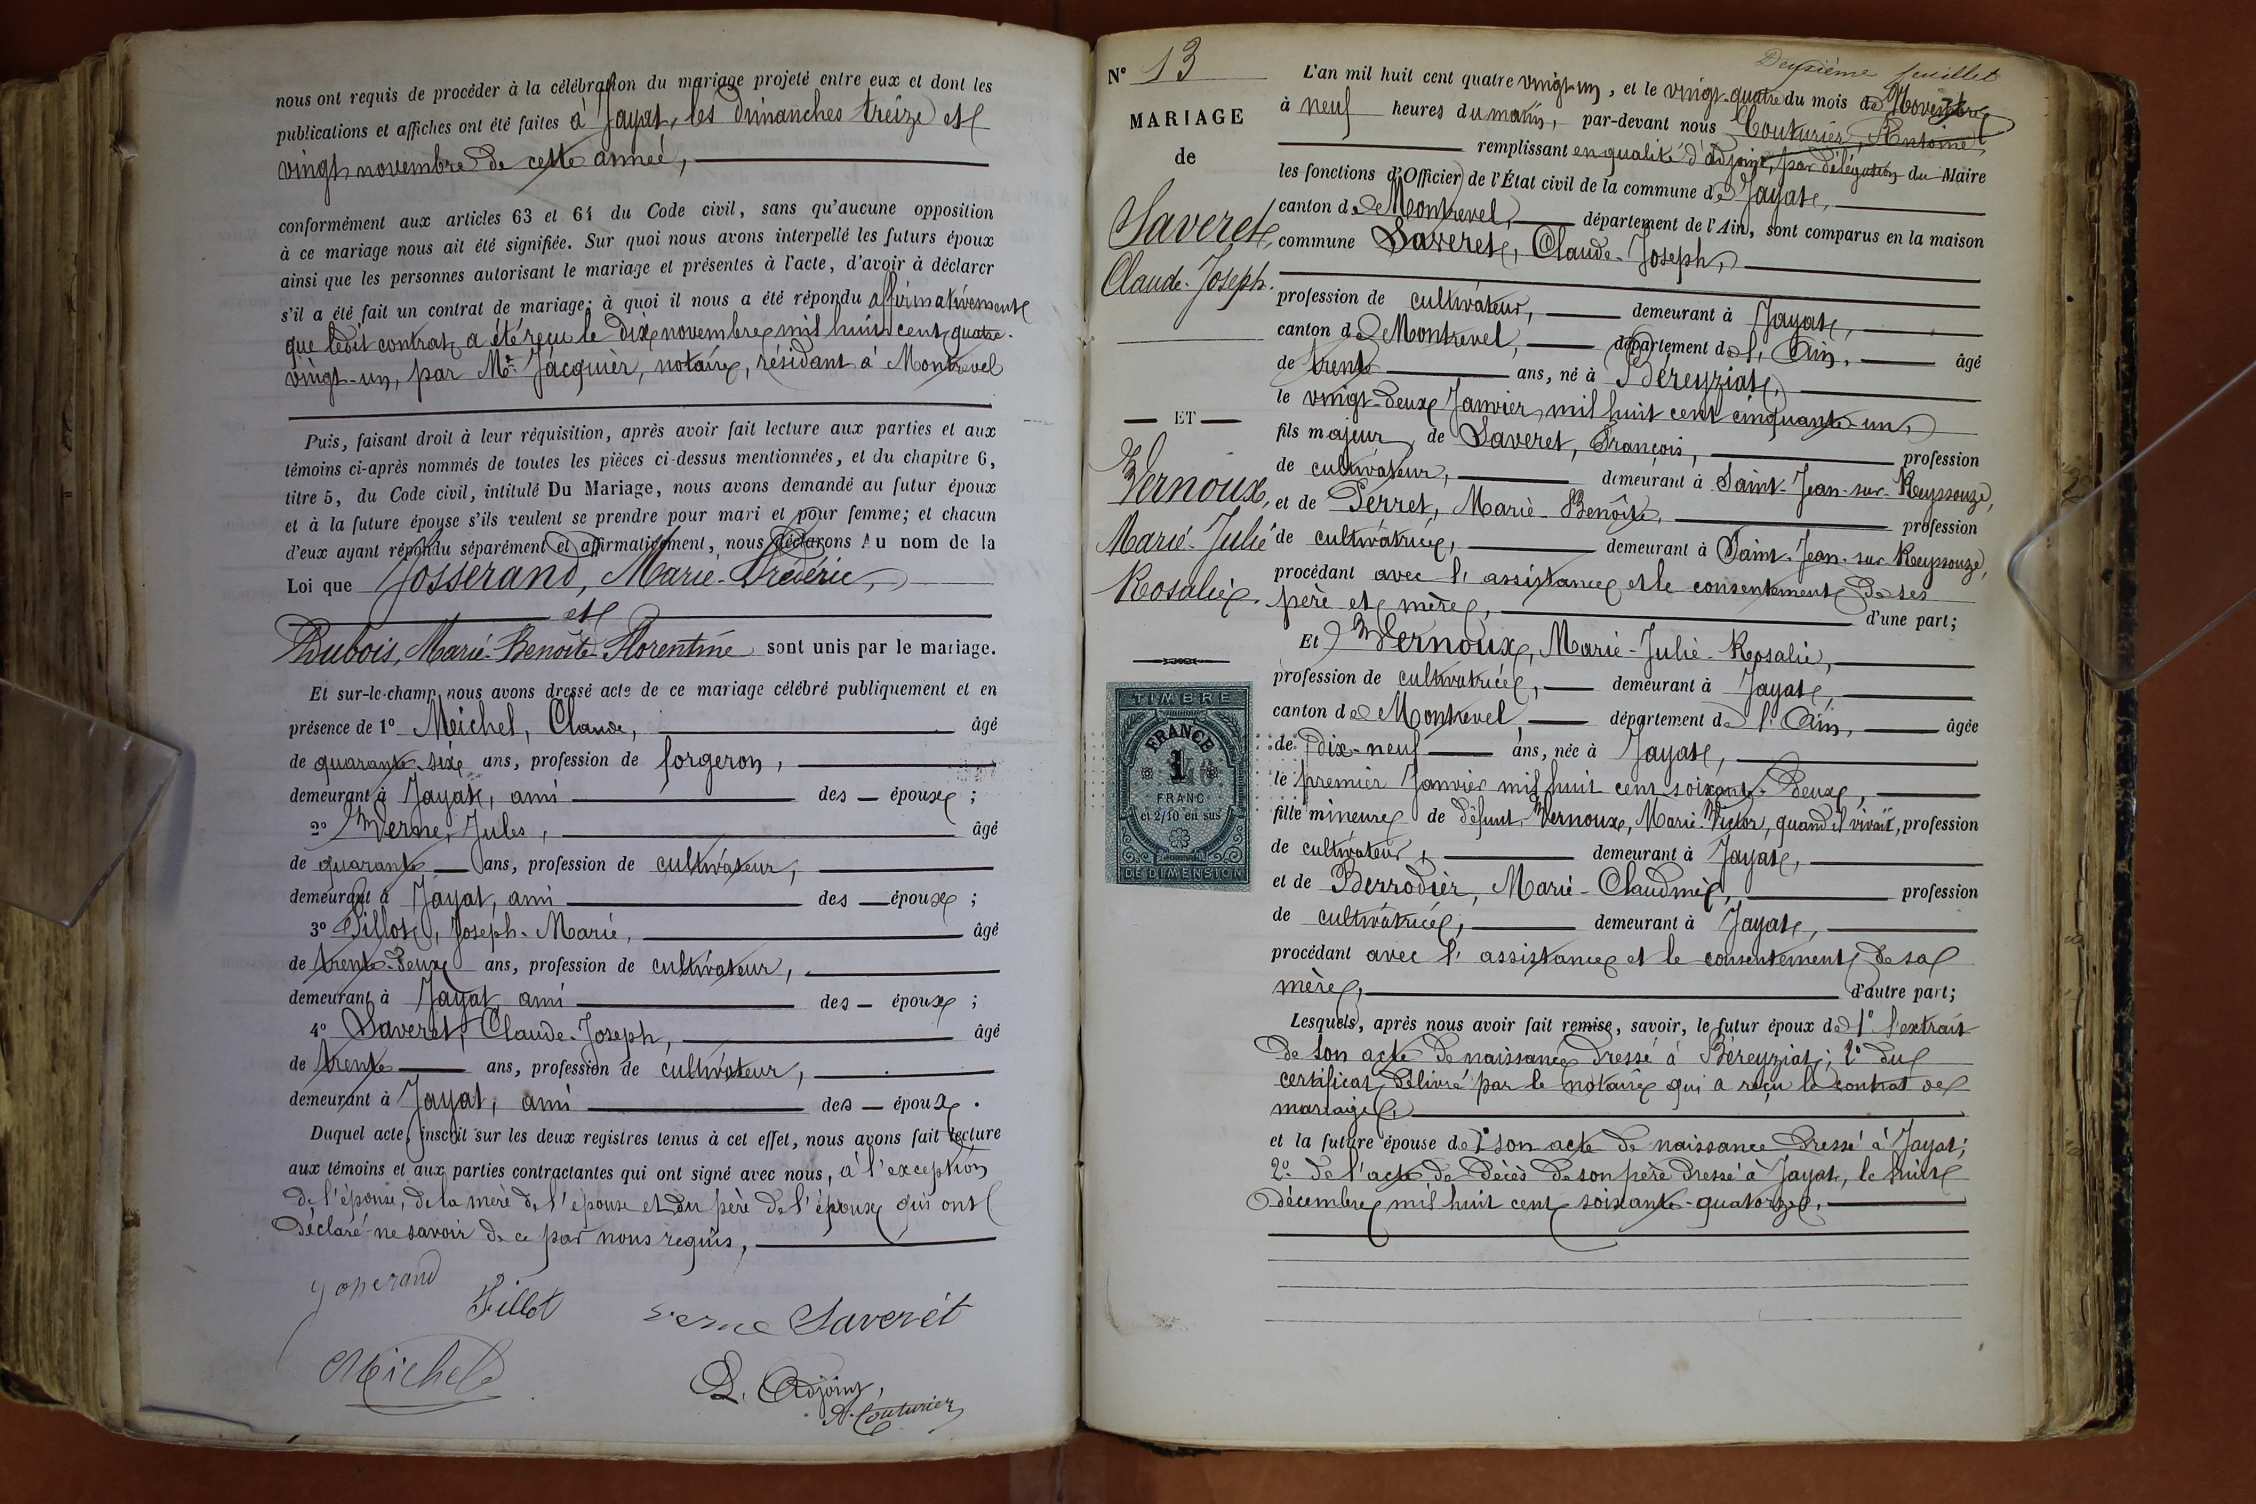 nous ont requis de procéder à la célébration du mariage projeté entre eux et dont les
publications et affiches ont été faites à Jayat, les dimanches treize et
vingt novembre de cette année,
conformément aux articles 63 et 64 du Code civil, sans qu'aucune opposition
à ce mariage nous ait été signifiée. Sur quoi nous avons interpellé les futurs époux
ainsi que les personnes autorisant le mariage et présentes à l'acte, d'avoir à déclarer
s'il a été fait un contrat de mariage; à quoi il nous a été répondu affirmativement
que ledit contrat a été reçu le dix novembre mil huit cent quatre-
vingt-un, par Me Jacquier, notaire, résidant à Montrevel
Puis, faisant droit à leur réquisition, après avoir fait lecture aux parties et aux
témoins ci-après nommés de toutes les pièces ci-dessus mentionnées, et du chapitre 6,
titre 5, du Code civil, intitulé Du Mariage, nous avons demandé au futur époux
et à la future épouse s'ils veulent se prendre pour mari et pour femme; et chacun
d'eux ayant répondu séparément et affirmativement, nous déclarons Au nom de la
Loi que Josserand, Marie-Frédéric,
et
Dubois, Marie-Benoîte-Florentine sont unis par le mariage.
Et sur-le-champ nous avons dressé acte de ce mariage célébré publiquement et en
présence de 1° Meichel, Claude, âgé
de quarante-six ans, profession de forgeron,
demeurant à Jayat, ami des époux ;
2° Verne, Jules, âgé
de quarante ans, profession de cultivateur,
demeurant à Jayat, ami des époux ;
3° Pillot, Joseph-Marie, âgé
de trente-deux ans, profession de cultivateur,
demeurant à Jayat, ami des époux ;
4° Saveret, Claude-Joseph, âgé
de trente ans, profession de cultivateur,
demeurant à Jayat, ami des époux.
Duquel acte, inscrit sur les deux registres tenus à cet effet, nous avons fait lecture
aux témoins et aux parties contractantes qui ont signé avec nous, à l'exception
de l'épouse, de la mère de l'épouse et du père de l'époux qui ont
déclaré ne savoir de ce par nous requis,
Josserand
Pillot
Verne Saveret
Michel
L. Adjoint,
A. Couturier
Deuxième feuillet
N° 13
MARIAGE
de
Saveret,
Claude-Joseph.
ET
Vernoux,
Marie-Julie
Rosalie.
TIMBRE
FRANCE
1
FRANC
et 2/10 en sus
DE DIMENSION
L'an mil huit cent quatre vingt-un, et le vingt-quatre du mois de Novembre
à neuf heures du matin, par-devant nous Couturier, Antoine,
remplissant en qualité d'adjoint, par délégation du Maire
les fonctions d'Officier de l'État civil de la commune de Jayat,
canton de Montrevel, département de l'Ain, sont comparus en la maison
commune Saveret, Claude-Joseph,
profession de cultivateur, demeurant à Jayat,
canton de Montrevel, département de l'Ain, âgé
de trente ans, né à Béreyziat,
le vingt-deux Janvier mil huit cent cinquante-un,
fils majeur de Saveret, François, profession
de cultivateur, demeurant à Saint-Jean-sur-Reyssouze,
et de Perret, Marie-Benoîte, profession
de cultivatrice, demeurant à Saint-Jean-sur Reyssouze,
procédant avec l'assistance et le consentement de ses
père et mère, d'une part;
Et Vernoux, Marie-Julie-Rosalie,
profession de cultivatrice, demeurant à Jayat,
canton de Montrevel, département de l'Ain, âgée
de dix-neuf ans, née à Jayat,
le premier Janvier mil huit cent soixante-deux,
fille mineure de défunt Vernoux, Marie-Victor, quand il vivait, profession
de cultivateur, demeurant à Jayat,
et de Berrodier, Marie-Claudine, profession
de cultivatrice, demeurant à Jayat,
procédant avec l'assistance et le consentement de sa
mère, d'autre part;
Lesquels, après nous avoir fait remise, savoir, le futur époux de 1° l'extrait
de son acte de naissance dressé à Béreyziat; 2° du
certificat délivré par le notaire qui a reçu le contrat de
mariage,
et la future épouse de 1° son acte de naissance dressé à Jayat;
2° de l'acte de décès de son père dressé à Jayat, le huit
décembre mil huit cent soixante-quatorze.